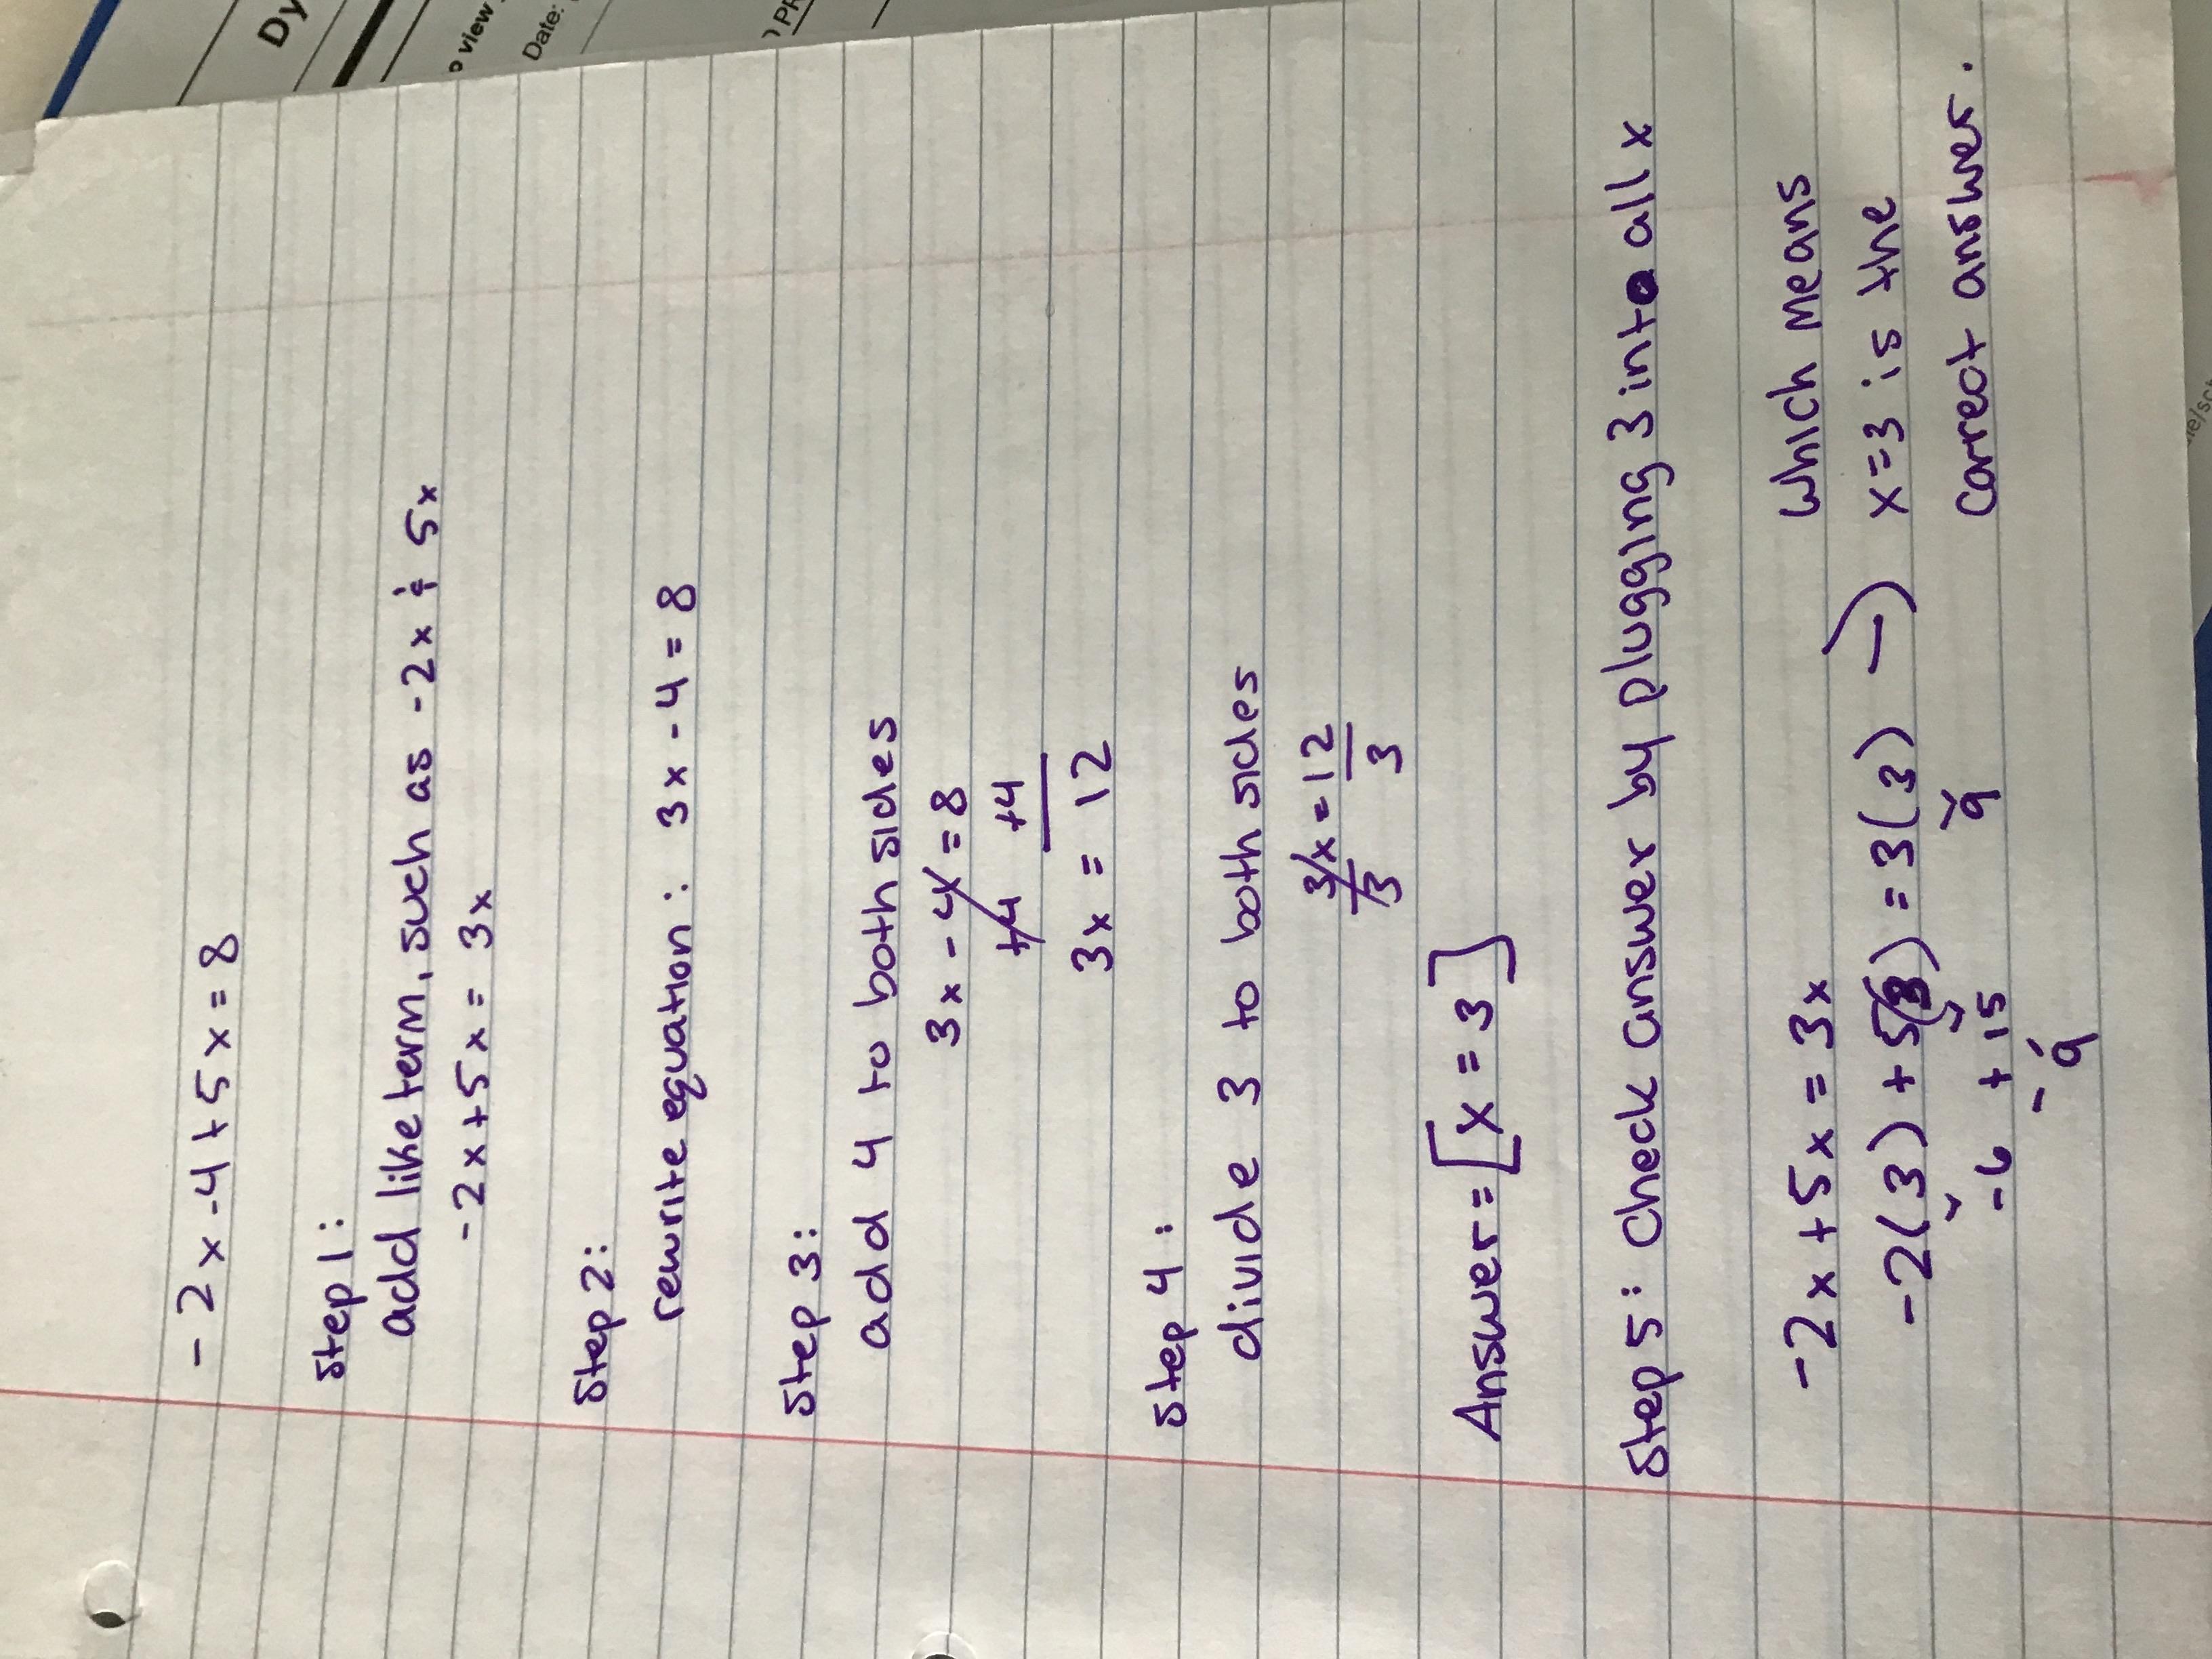 Dy
view
Date:
-2x-4+5x=8
Step 1:
add like term, such as -2x & 5x
-2x+5x=3x
Step 2:
rewrite equation: 3x-4=8
Step 3:
add 4 to both sides
3x-4=8
+4 +4
3x=12
Step 4:
divide 3 to both sides
3x=12
3 3
Answer=[x=3]
Step 5: Check answer by plugging 3 into all x
-2x+5x=3x which means
-2(3)+5(3)=3(3) → x=3 is the
-6 +15 9 correct answer.
9